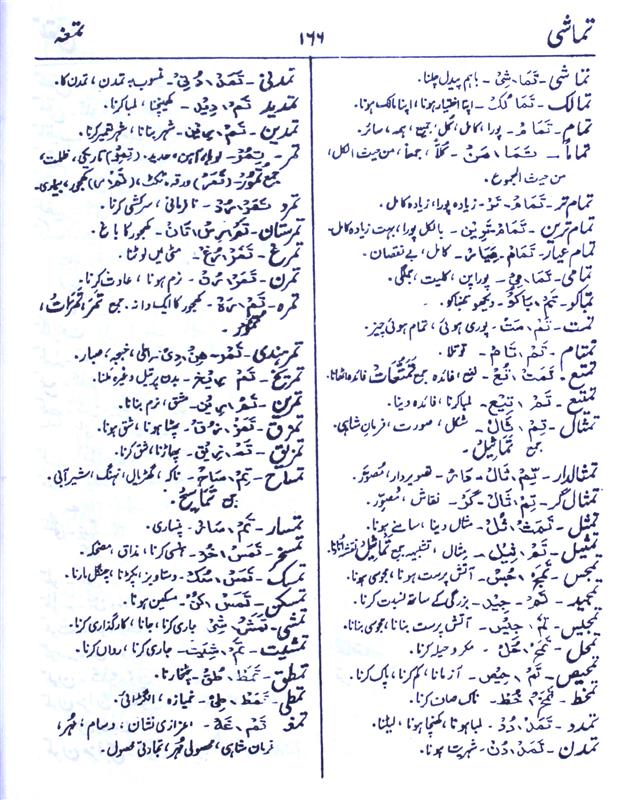 تماشی
۱۶۶
تمغہ
تماشی - تَمَا۔شِیْ - باہم پیدل چلنا۔
تمالک - تَمَا۔لُکْ - اپنا اختیار ہونا، اپنا مالک ہونا۔
تمام - تَمَا۔مْ - پورا، کامل، کل، جمیع، ہمہ، سائر۔
تماماً - تَمَا۔مَنْ - کُلّاً، جمعاً، من حیث الکل،
من حیث المجموع۔
تمام تر - تَمَامْ۔تَرْ - زیادہ پورا، زیادہ کامل۔
تمام ترین - تَمَامْ۔تَرِیْنْ - بالکل پورا، بہت زیادہ کامل۔
تمام عیار - تَمَامْ۔عِیَارْ - کامل، بے نقصان۔
تمامی - تَمَا۔مِیْ - پورا پن، کلیت، جملگی۔
تمباکو - تَمْ۔بَاکُوْ - دیکھو تنباکو۔
تمت - تَمْ۔مَتْ - پوری ہوئی، تمام ہوئی چیز۔
تمتام - تَمْ۔تَامْ - توتلا۔
تمتع - تَمَتْ۔تُعْ - نفع، فائدہ جمع تَمَتُّعَات فائدہ اٹھانا۔
تمتیع - تَمْ۔تِیْعْ - لمبا کرنا، فائدہ دینا۔
تمثال - تِمْ۔ثَالْ - شکل، صورت، فرمان شاہی۔
جمع تَمَاثِیْل۔
تمثالدار - تِمْ۔ثَالْ۔دَارْ - تصویر دار، مُصوّر۔
تمثال گر - تِمْ۔ثَالْ۔گَرْ - نقاش، مُصوّر۔
تمثل - تَمَثْ۔ثُلْ - مثال دینا، سامنے ہونا۔
تمثیل - تَمْ۔ثِیْلْ - مثال، تشبیہ جمع تَمَاثِیْل
تمجس - تَمَجْ۔جُسْ - آتش پرست ہونا، مجوسی ہونا۔
تمجید - تَمْ۔جِیْدْ - بزرگی کے ساتھ نسبت کرنا۔
تمجیس - تَمْ۔جِیْسْ - آتش پرست بنانا، مجوسی بنانا۔
تمحل - تَمَحْ۔حُلْ - مکر و حیلہ کرنا۔
تمحیص - تَمْ۔حِیْصْ - آزمانا، کم کرنا، پاک کرنا۔
تمخط - تَمَخْ۔خُطْ - ناک صاف کرنا۔
تمدد - تَمَدْ۔دُدْ - لمبا ہونا، کھنچا ہونا، لیٹنا۔
تمدن - تَمَدْ۔دُنْ - شہریت ہونا۔
تمدنی - تَمَدْ۔دُنِیْ - منسوب بہ تمدن، تمدن کا۔
تمدید - تَمْ۔دِیْدْ - کھینچنا، لمبا کرنا۔
تمدین - تَمْ۔دِیْنْ - شہر بنانا، شہر تعمیر کرنا۔
تمر - تِمُرْ - لوہا، آہن، حدید۔ تاریکی، ظلمت،
جمع تُمُوْر (تَمَرْ) ورقہ، ٹکٹ، کھجور، بیماری۔
تمرد - تَمَرْ۔رُدْ - نافرمانی، سرکشی کرنا۔
تمرستان - تَمْ۔رِسْ۔تَانْ - کھجور کا باغ۔
تمرغ - تَمَرْ۔رُغْ - مٹی میں لوٹنا۔
تمرن - تَمَرْ۔رُنْ - نرم ہونا، عادت کرنا۔
تمرہ - تَمْ۔رَہْ - کھجور کا ایک دانہ۔ جمع تَمْر، تَمَرَات،
تُمُوْر۔
تمر ہندی - تَمْرِ۔ھِنْ۔دِیْ - املی، خبجہ، صبار۔
تمریخ - تَمْ۔رِیْخْ - بدن پر تیل وغیرہ ملنا۔
تمرین - تَمْ۔رِیْنْ - مشق، نرم بنانا۔
تمزق - تَمَزْ۔زُقْ - پھٹا ہونا، شق ہونا۔
تمزیق - تَمْ۔زِیْقْ - پھاڑنا، شق کرنا۔
تمساح - تِمْ۔سَاحْ - ناکہ، گھڑیال، نہنگ، شیر آبی۔
جمع تَمَاسِیْح۔
تمسار - تَمْ۔سَارْ - پنساری۔
تمسخر - تَمَسْ۔خُرْ - ہنسی کرنا، مذاق، مضحکہ۔
تمسک - تَمَسْ۔سُکْ - دستاویز، پکڑنا، چنگل مارنا۔
تمسکن - تَمَسْ۔کُنْ - مسکین ہونا۔
تمشی - تَمَشْ۔شِیْ - جاری کرنا، جانا، کارگذاری کرنا۔
تمشیت - تَمْ۔شِیَتْ - جاری کرنا، رواں کرنا۔
تمطق - تَمَطْ۔طُقْ - چٹخارنا۔
تمطی - تَمَطْ۔طِیْ - خمیازہ، انگڑائی۔
تمغہ - تَمْ۔غَہْ - اعزازی نشان، وسام، مُہر،
فرمان شاہی، محصولی مُہر، تجارتی محصول۔